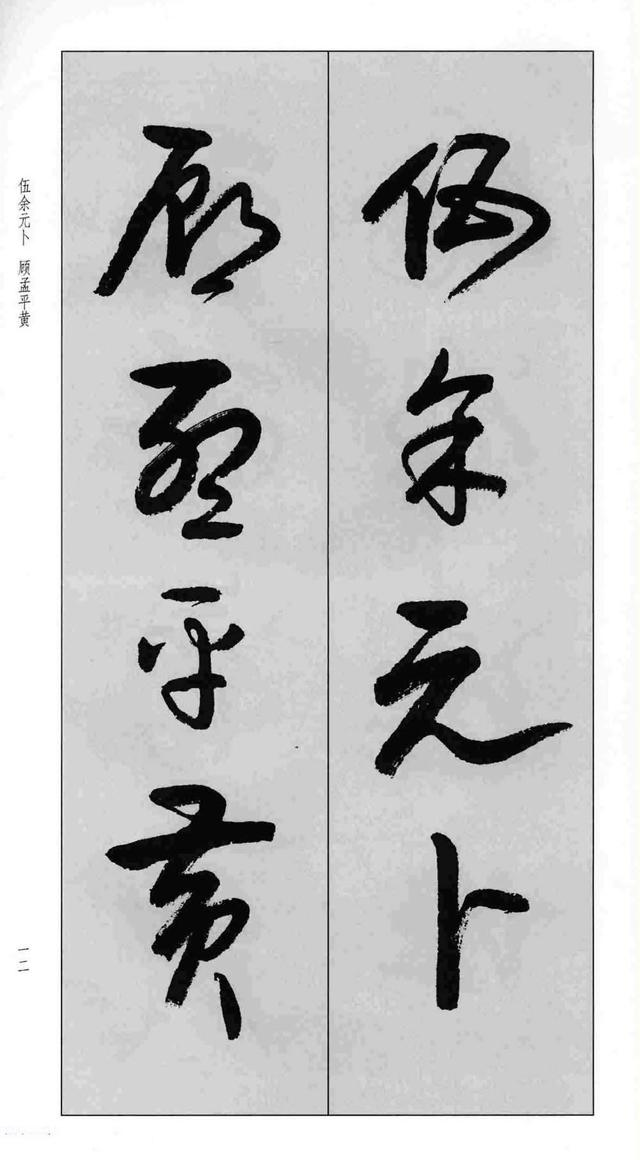 伍余元卜
顾孟平黄
伍余元卜 顾孟平黄
一二